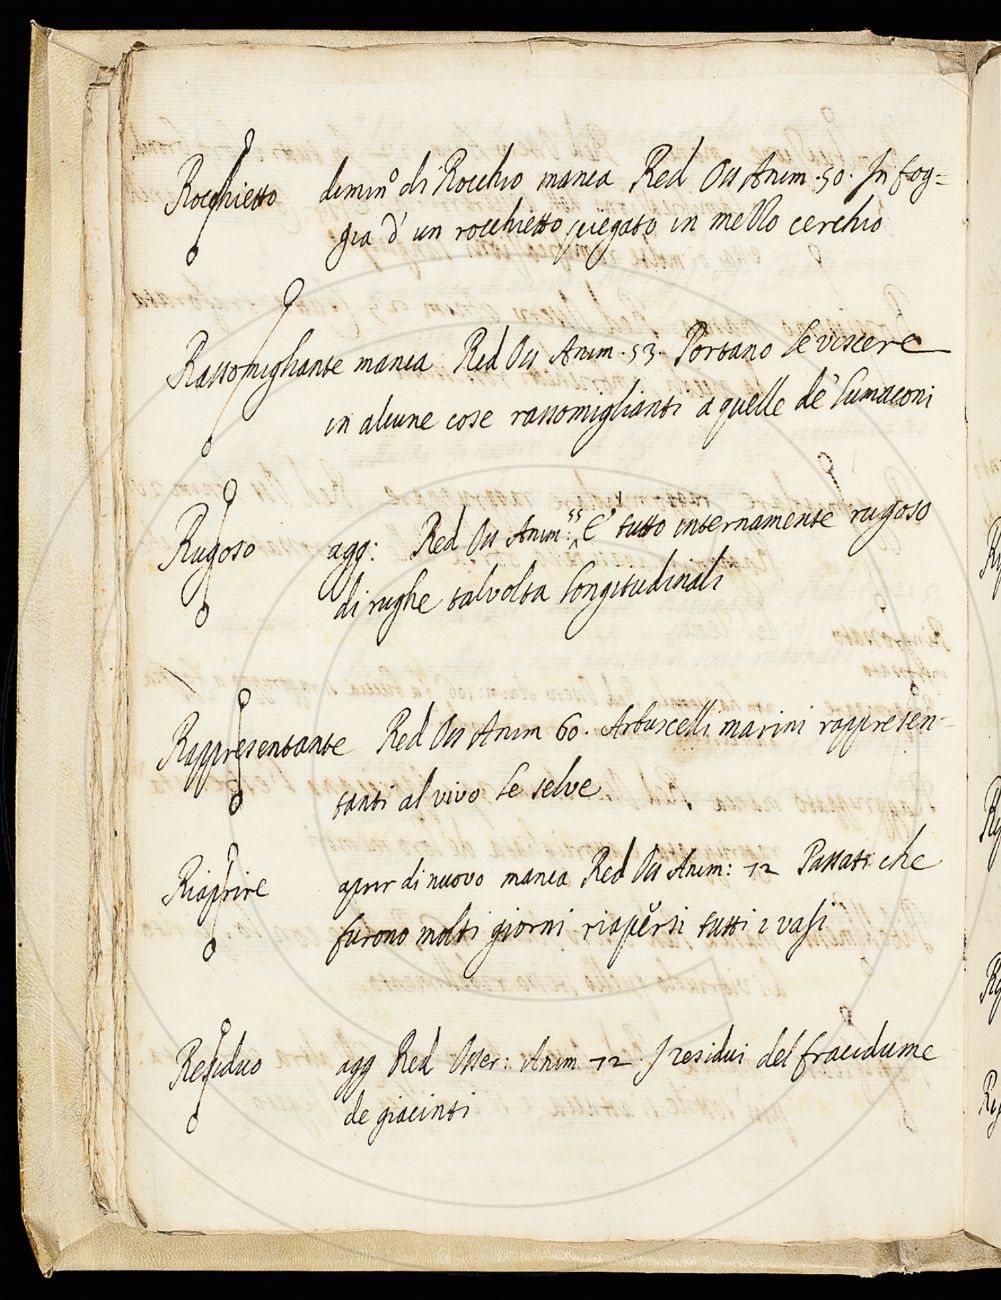 Rocchietto dimin.o di Rocchio manca Red Oss Anim. 50. In fog=
gia d' un rocchietto piegato in mezzo cerchio
Rassomigliante manca Red Oss Anim. 53. Portano le viscere
in alcune cose rassomiglianti a quelle de' Lumaconi
Rugoso agg: Red Oss Anim: 55 E' tutto internamente rugoso
di rughe talvolta longitudinali
Rappresentante Red Oss Anim 60. Arbuscelli marini rappresen=
tanti al vivo le selve
Riaprire aprir di nuovo manca Red Oss Anim: 72 Passati che
furono molti giorni riapersi tutti i vasi
Residuo agg Red Osser: Anim 72. I residui del fracidume
de giacinti